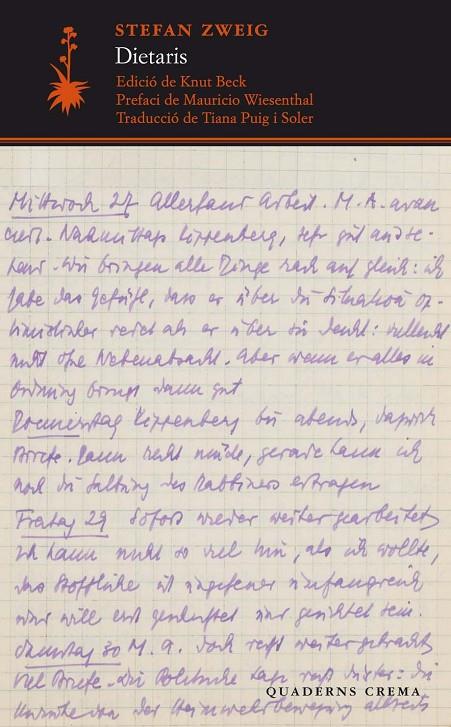 STEFAN ZWEIG
Dietaris
Edició de Knut Beck
Prefaci de Mauricio Wiesenthal
Traducció de Tiana Puig i Soler
Mittwoch 27 Allerhand Arbeit. M. A. avan
ciert. Nachmittags Kippenberg, sehr gut
Wir bringen alle Dinge rasch auf gleich: ich
habe das Gefühl, dass er über die Situation op-
timistischer als er über sie denkt: vielleicht
nicht ohne Nebenabsicht. Aber wenn er alles in
Ordnung bringt dann gut
Donnerstag Kippenberg bis abends,
Briefe. Dann recht müde, gerade kann ich
noch die des Rabbiners ertragen
Freitag 29 Sofort wieder weitergearbeitet
Ich kann nicht so viel hin, als ich wollte,
das Stoffliche ist umfangreich
und will erst und gesichtet sein.
Samstag 30 M. A. doch recht weitergebracht
Viel Briefe. Die Politische Lage recht düster: die
der Heimwehrbewegung
QUADERNS CREMA